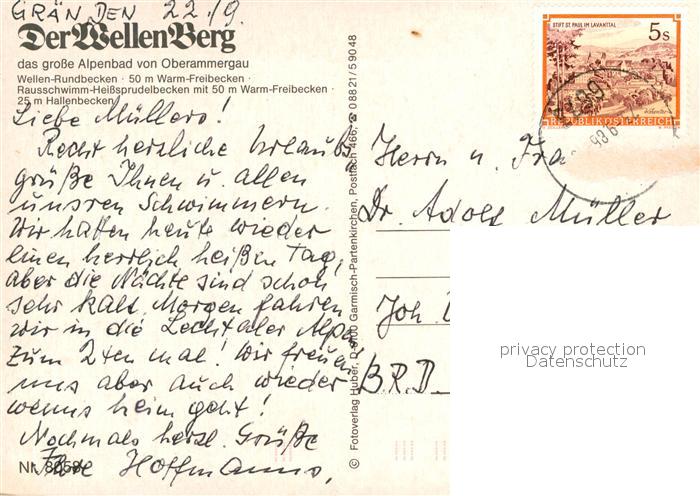 GRÄN DEN 22./9.
Der Wellen Berg
das große Alpenbad von Oberammergau
Wellen-Rundbecken · 50 m Warm-Freibecken ·
Rausschwimm-Heißsprudelbecken mit 50 m Warm-Freibecken ·
25 m Hallenbecken
Liebe Müllers!
Recht herzliche Urlaubs
grüße Ihnen u. allen
unsren Schwimmern.
Wir hatten heute wieder
einen herrlich heißen Tag,
aber die Nächte sind schon
sehr kalt. Morgen fahren
wir in die Lechtaler Alpen
zum 2ten mal! Wir freuen
uns aber auch wieder
wenns heim geht!
Nochmals herzl. Grüße
Ihre Hoffmanns,
Nr. 8058
© Fotoverlag Huber, D-8100 Garmisch-Partenkirchen, Postfach 466, ☎ 08821/59048
STIFT ST. PAUL IM LAVANTTAL
5 S
REPUBLIK ÖSTERREICH
Herrn u. Fra
Dr. Adolf Müller
Joh.
B.R.D
privacy protection
Datenschutz